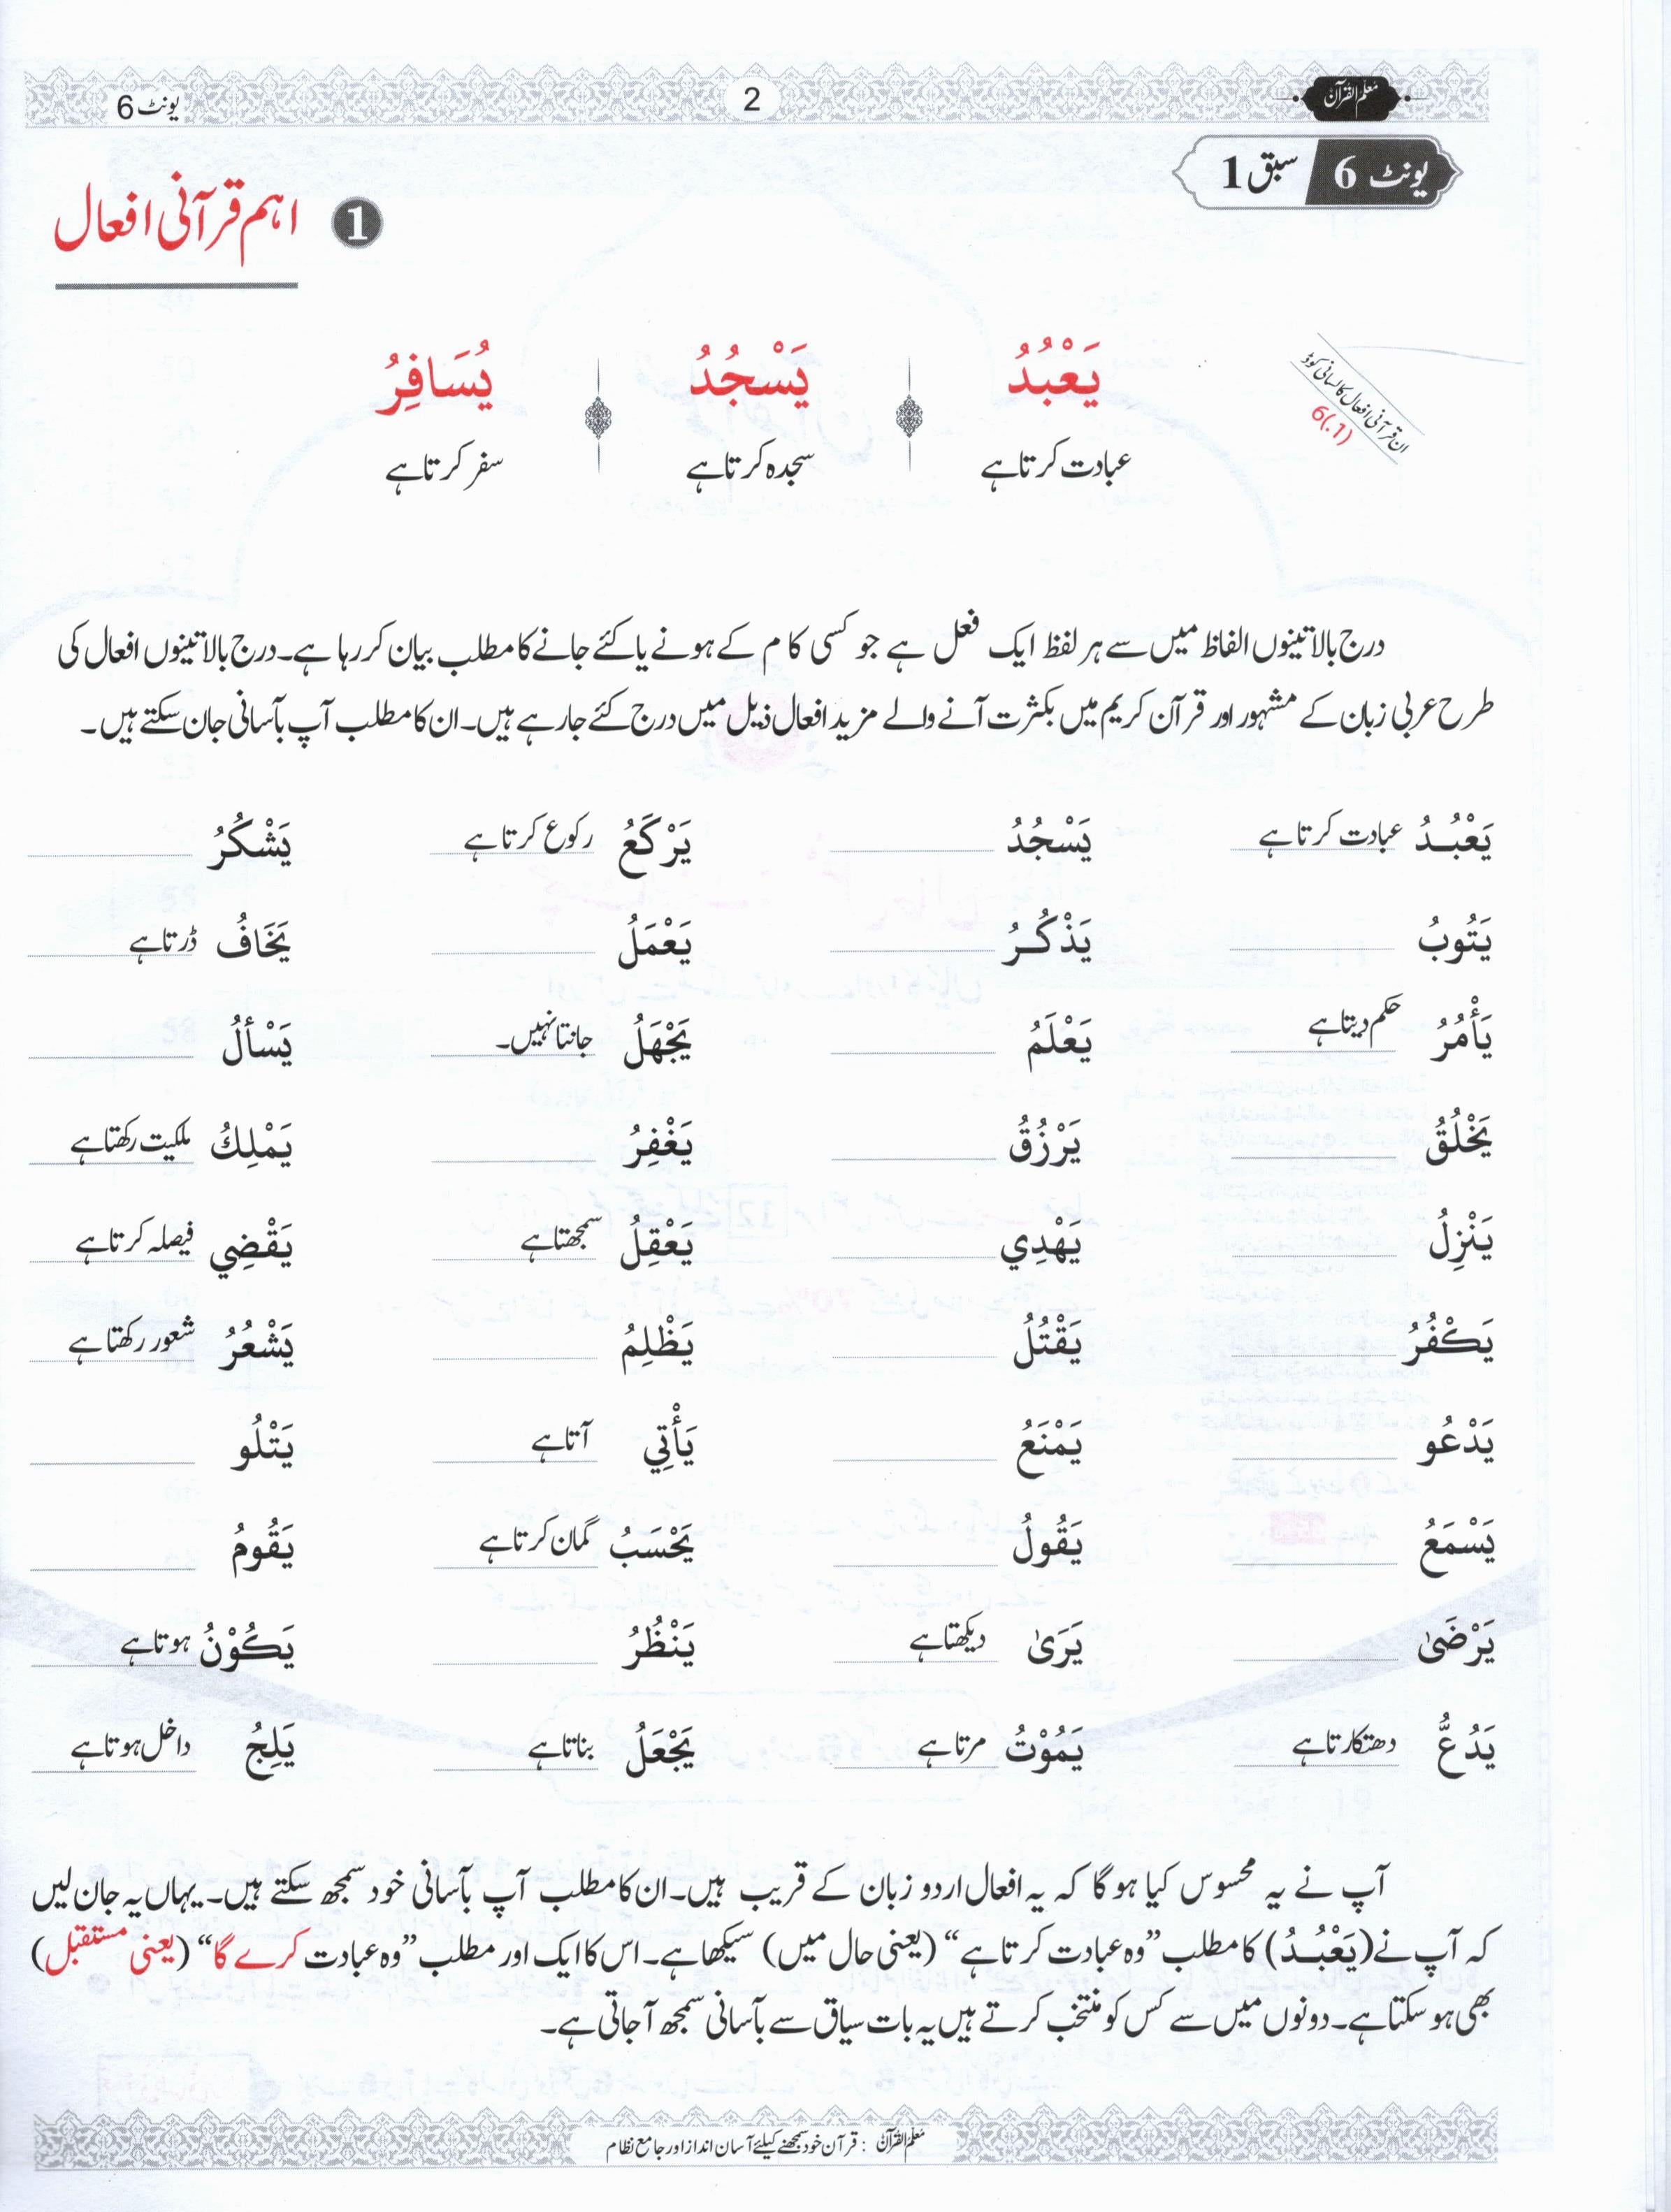 معلم القرآن
2
یونٹ 6
یونٹ 6 سبق 1
1 اہم قرآنی افعال
ان قرآنی افعال کا لسانی کوڈ
6(.1)
يَعْبُدُ يَسْجُدُ يُسَافِرُ
عبادت کرتا ہے سجدہ کرتا ہے سفر کرتا ہے
درج بالا تینوں الفاظ میں سے ہر لفظ ایک فعل ہے جو کسی کام کے ہونے یا کئے جانے کا مطلب بیان کر رہا ہے۔ درج بالا تینوں افعال کی
طرح عربی زبان کے مشہور اور قرآن کریم میں بکثرت آنے والے مزید افعال ذیل میں درج کئے جا رہے ہیں۔ ان کا مطلب آپ بآسانی جان سکتے ہیں۔
يَعْبُدُ عبادت کرتا ہے يَسْجُدُ يَرْكَعُ رکوع کرتا ہے يَشْكُرُ
يَتُوبُ يَذْكُرُ يَعْمَلُ يَخَافُ ڈرتا ہے
يَأْمُرُ حکم دیتا ہے يَعْلَمُ يَجْهَلُ جانتا نہیں۔ يَسْألُ
يَخْلُقُ يَرْزُقُ يَغْفِرُ يَمْلِكُ ملکیت رکھتا ہے
يَنْزِلُ يَهْدِي يَعْقِلُ سمجھتا ہے يَقْضِي فیصلہ کرتا ہے
يَكْفُرُ يَقْتُلُ يَظْلِمُ يَشْعُرُ شعور رکھتا ہے
يَدْعُو يَمْنَعُ يَأْتِي آتا ہے يَتْلُو
يَسْمَعُ يَقُولُ يَحْسَبُ گمان کرتا ہے يَقُومُ
يَرْضَىٰ يَرَىٰ دیکھتا ہے يَنْظُرُ يَكُوْنُ ہوتا ہے
يَدُعُّ دھتکارتا ہے يَمُوْتُ مرتا ہے يَجْعَلُ بناتا ہے يَلِجُ داخل ہوتا ہے
آپ نے یہ محسوس کیا ہو گا کہ یہ افعال اردو زبان کے قریب ہیں۔ ان کا مطلب آپ بآسانی خود سمجھ سکتے ہیں۔ یہاں یہ جان لیں
کہ آپ نے (يَعْبُدُ) کا مطلب ”وہ عبادت کرتا ہے“ (یعنی حال میں) سیکھا ہے۔ اس کا ایک اور مطلب ”وہ عبادت کرے گا“ (یعنی مستقبل)
بھی ہو سکتا ہے۔ دونوں میں سے کس کو منتخب کرتے ہیں یہ بات سیاق سے بآسانی سمجھ آجاتی ہے۔
معلم القرآن : قرآن خود سمجھنے کیلئے آسان انداز اور جامع نظام